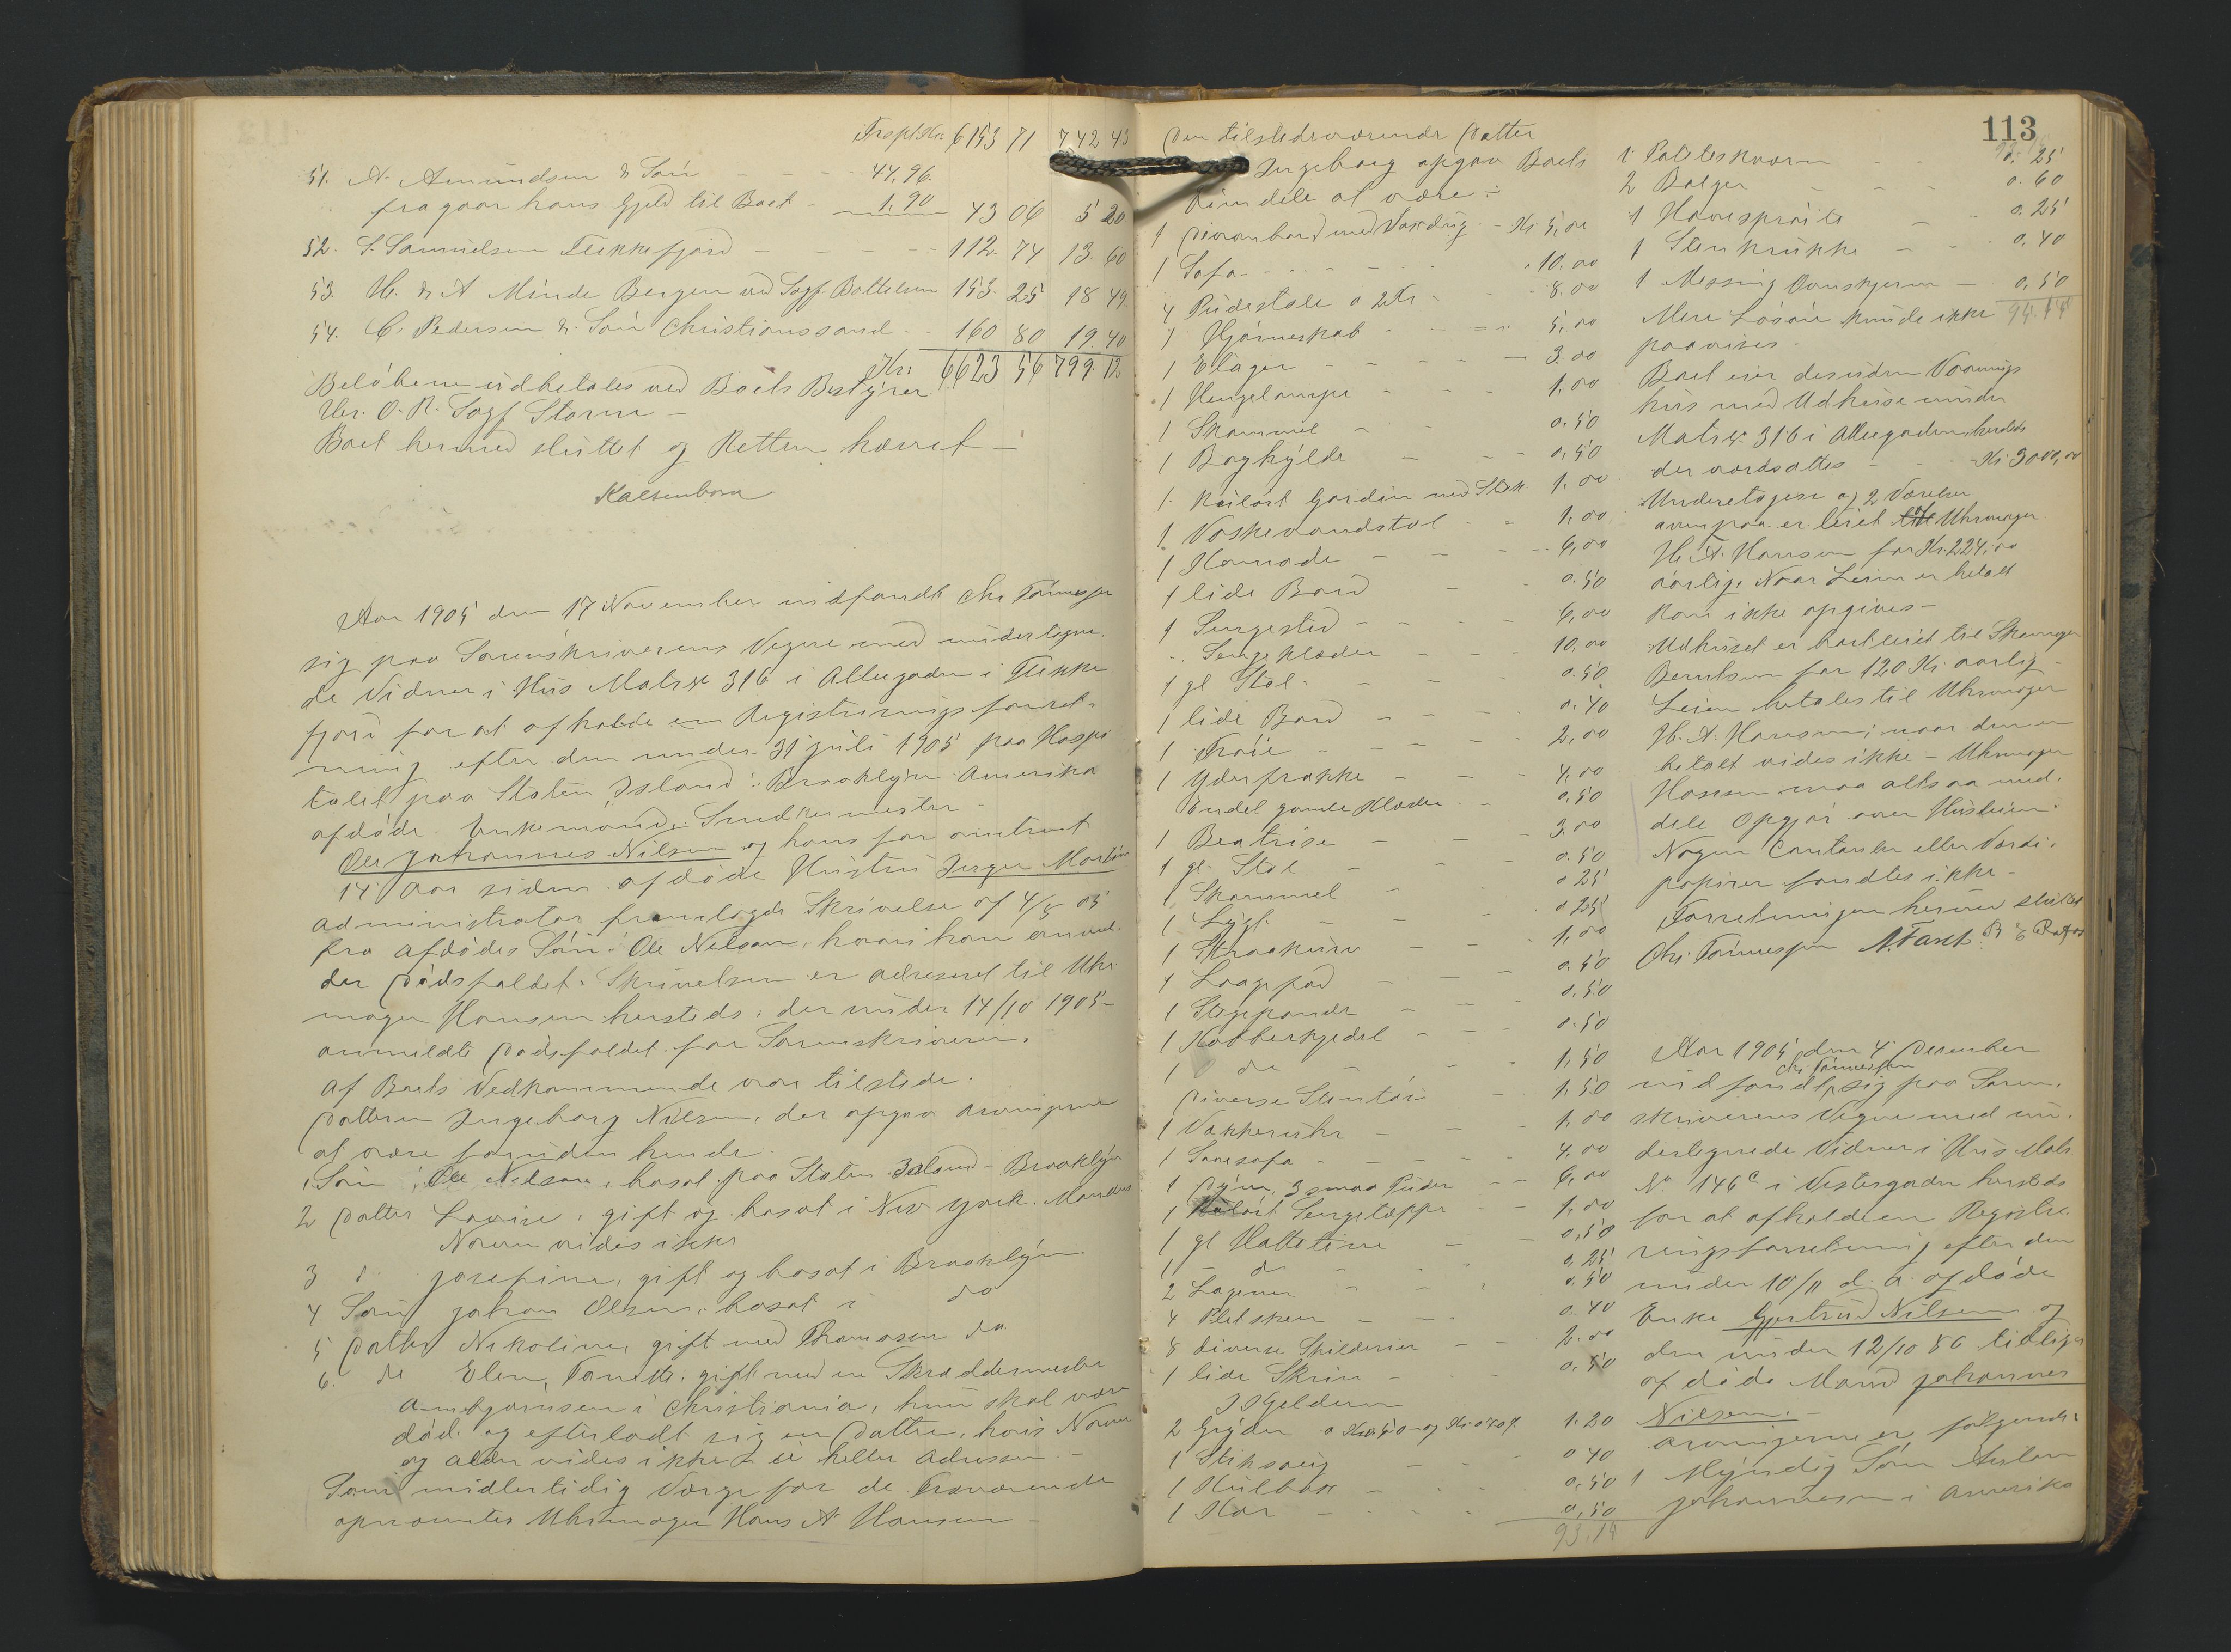 Trspt. Kr. 6153 71 742 43
51. A. Amundsen & Sön - - - 44,96
fragaar hans Gjeld til Boet - 1,90 43 06 5 20
52. S. Samuelsen Flekkefjord - - - 112. 74 13. 60
53. H. & A Minde Bergen ved Sagf. Bottelsen 153. 25 18 49
54. C. Pedersen & Sön Christianssand - - 160 80 19. 40
Kr: 6623 56 799. 12
Belöbene udbetales ved Boets Bestyrer
Hr. O. R. Sagf Storm -
Boet hermed sluttet og Retten hævet -
Aar 1905 den 17 November indfandt Chr Tönnessen
sig paa Sorenskriverens Vegne med undertegne-
de Vidner i Hus Matr № 316 i Alleegaden i Flekke
fjord for at afholde en Registreringsforret-
ning efter den under 31 juli 1905 paa Hospi
talet paa Staten Island: Brooklyn Amerika
afdöde Enkemand
Ole Johannes Nilsen og hans for omtrent
14 Aar siden afdöde Hustru
Administrator fremlagde Skrivelse af
fra afdödes Sön: Ole Nelson, hvori han anmel-
der Dödsfaldet. Skrivelsen er adresseret til Uhr-
mager Hansen hersteds, der under 14/10 1905 -
anmeldte Dödsfaldet for Sorenskriveren.
Af Boets Vedkommende var tilstede.
Datteren Ingeborg Nilsen, der opgav Arvingerne
at være foruden hende.
1 Sön: Ole Nelson, bosat paa Staten Island - Brooklyn
2 Datter Lovise, gift og bosat i New York. Mandens
Navn vides ikke
3 d. Josefine, gift og bosat i Brooklyn.
4 Sön Johan Olsen, bosat i do
5 Datter Nikoline, gift med Thomasen do.
6. do Elen, Tanette, gift med en Skræddermester
i Christiania, hun skal være
död og efterladt sig en Datter, hvis Navn
og Alder vides ikke, ei heller Adressen. -
Som midlertidig Værge for de Fraværende
opnævntes Uhrmager Hans A Hansen -
113
Den tilstedeværende Datter
Ingeborg opgav Boets
Eiendele at være:
1 Divanbord med Voxdug - Kr. 5,00
1 Sofa - - - - 10,00
4 Pudestole a 2 Kr - - 8.00
1 Hjörneskab - - - 5,00
1 Etager - - - 3.00
1 Hengelampe - - - 1,00
1 Skammel - - 0.50
1 Boghylde - - - 0,50
1. Gardin med Stok 1.00
1. Vaskevandstol - - 1,00
1 Komode - - - 6,00
1 lide Bord - - 0.50
1 Sengested - - - 6,00
- Sengeklæder - - - 10,00
1 gl Stol - - - 0.50
1 lide Bord - - - 0.40
1 Tröie - - - 2,00
1 Yderfrakke - - - 4,00
Endel gamle Klæder - 0.50
1 - - - 3,00
1 gl. Stol - - 0.50
1 Skammel - - 0 25
1 Lygt - - 0 25
1 - - - 1,00
1 - - 0.50
1 Stegepande - - 0.50
1 Kobberkjedel - - - 0.50
1 do - - 1,50
Diverse Stentöi - 1,50
1 Vækkeruhr - - - 1,00
1 - - - 4,00
1 Dyne, 3 smaa Puder - - 6,00
1 Sengetæppe - - 1,00
1 gl Hattetine - - 0,50
1 do - - 0,25
2 Lagener - - 0,50
4 - - - 0.40
8 diverse Skilderier - - 2.00
1 lide Skrin - - 0,50
I Kjelderen
2 Gryder 1.20
1 - - 0 40
1 - - 0,50
1 Kar - - 0,50
93.14
1 - 0, 25
2 Balger - - - 0. 60
1 Havespröite - - 0. 25
1 Stenkrukke - - 0, 40
1 Messing - 0, 50
Mere Lösöre kunde ikke
paavises.
Boet eier desuden Vaanings
hus med Udhuse under
Matr № 316 i Alleegaden hersteds
der værdsattes - - - Kr 3000,00
Underetagen og 2 Værelser
ovenpaa er leiet til Uhrmager
H. A. Hansen for Kr. 224,00
aarlig. Naar Leien er betalt
kan ikke opgives -
Udhuset er bortleiet til Skomager
Berntsen for 120 Kr. aarlig -
Leien betales til Uhrmager
H. A. Hansen; naar den er
betalt vides ikke - Uhrmager
Hansen maa altsaa med-
dele Opgjör over Husleien.
Nogen Contanter eller Værdi-
papirer fandtes ikke -
Forretningen herved sluttet
Chr. Tönnessen
Aar 1905 den 4 December
Chr. Tönnessen
indfandt sig paa Soren-
skriverens Vegne med un-
dertegnede Vidner i Hus Matr.
№ 146c i Vestergaden hersteds
for at afholde en Registre-
ringsforretning efter den
under 10/11 d. a. afdöde
Enke Gjertrud Nilsen og
den under 12/10 86 tidligere
afdöde Mand Johannes
Nilsen. -
Arvingerne er fölgende:
1 Myndig Sön
Johannesen i Amerika